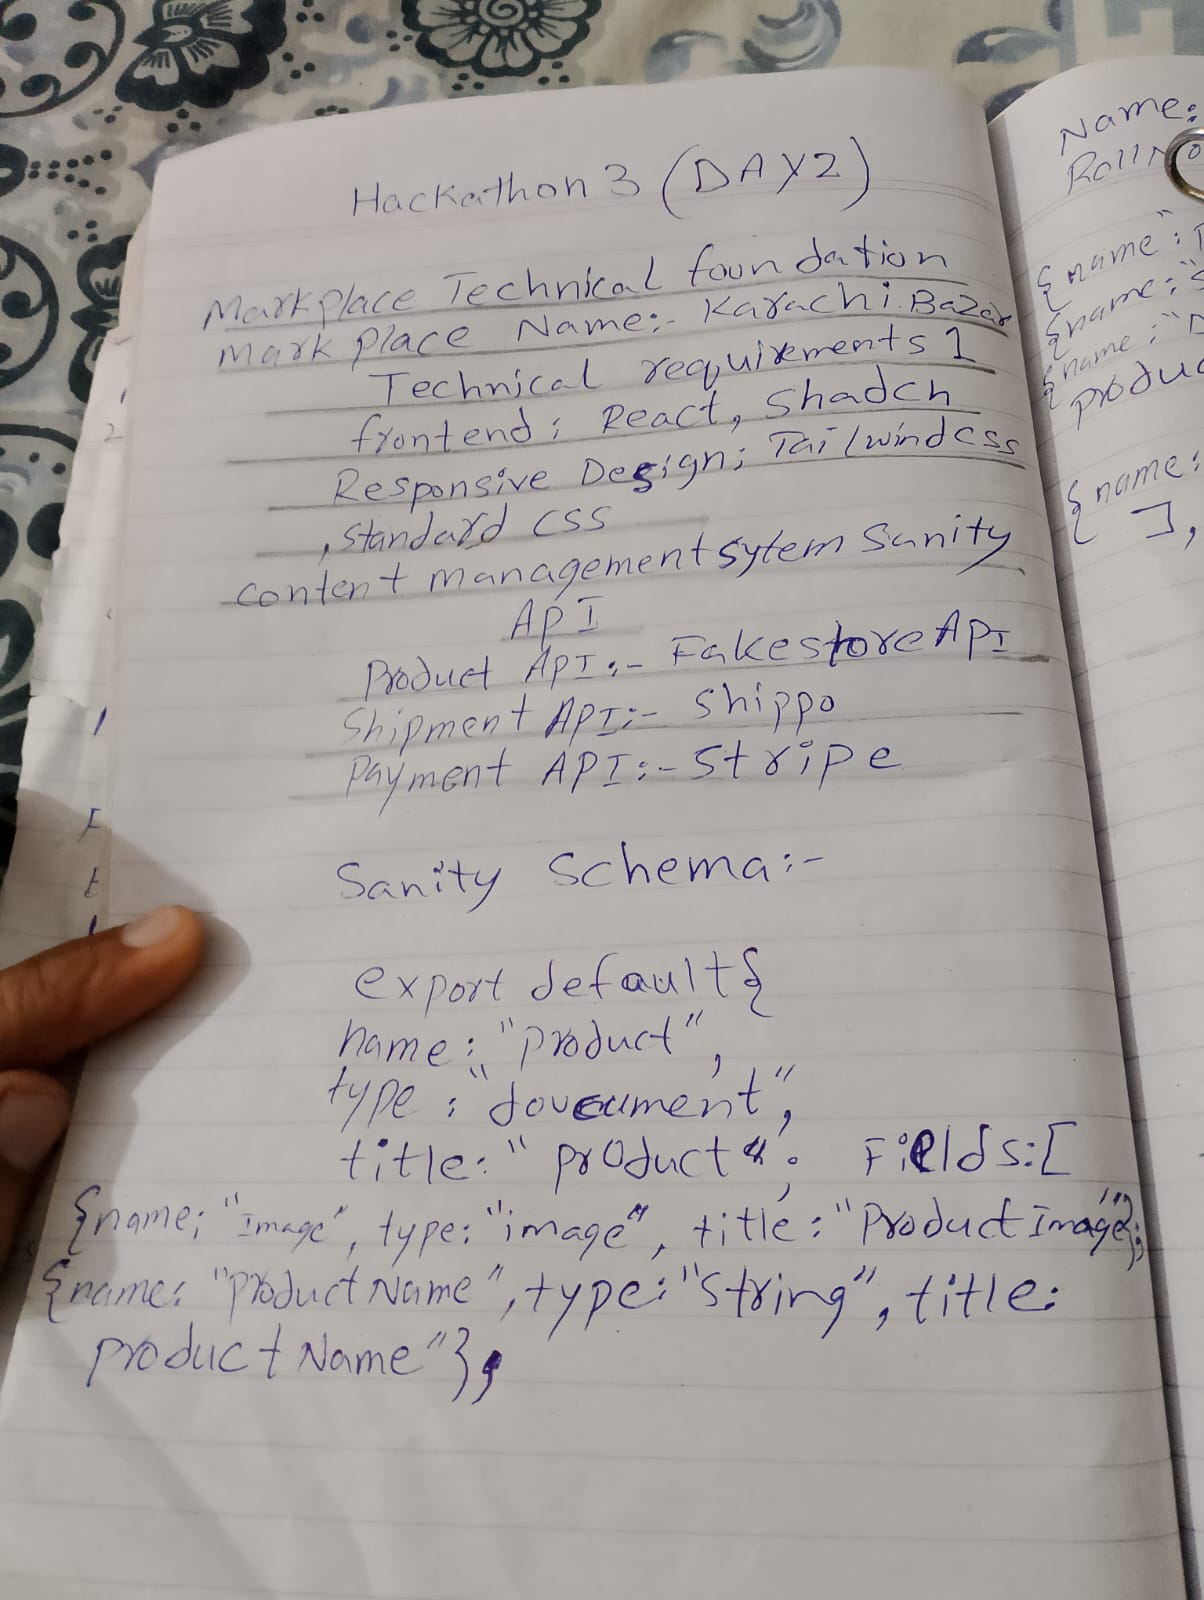 Hackathon 3 (DAY2)
Markplace Technical foundation
Mark place Name:- Karachi.Bazar
Technical requirements 1
frontend: React, Shadcn
Responsive Design; Tailwindcss
, Standard CSS
content management sytem Sanity
API
Product API:- FakestoreApi
Shipment API:- Shippo
Payment API:- Stripe
Sanity Schema:-
export default{
name: "product",
type: "doucument",
title: "product", Fields:[
{name; "Image", type: "image", title: "Product Image"};
{name: "Product Name", type: "String", title:
product Name"},
Name:
Roll No
{name":
{name:"S
{name:"D
produc
{name:
],